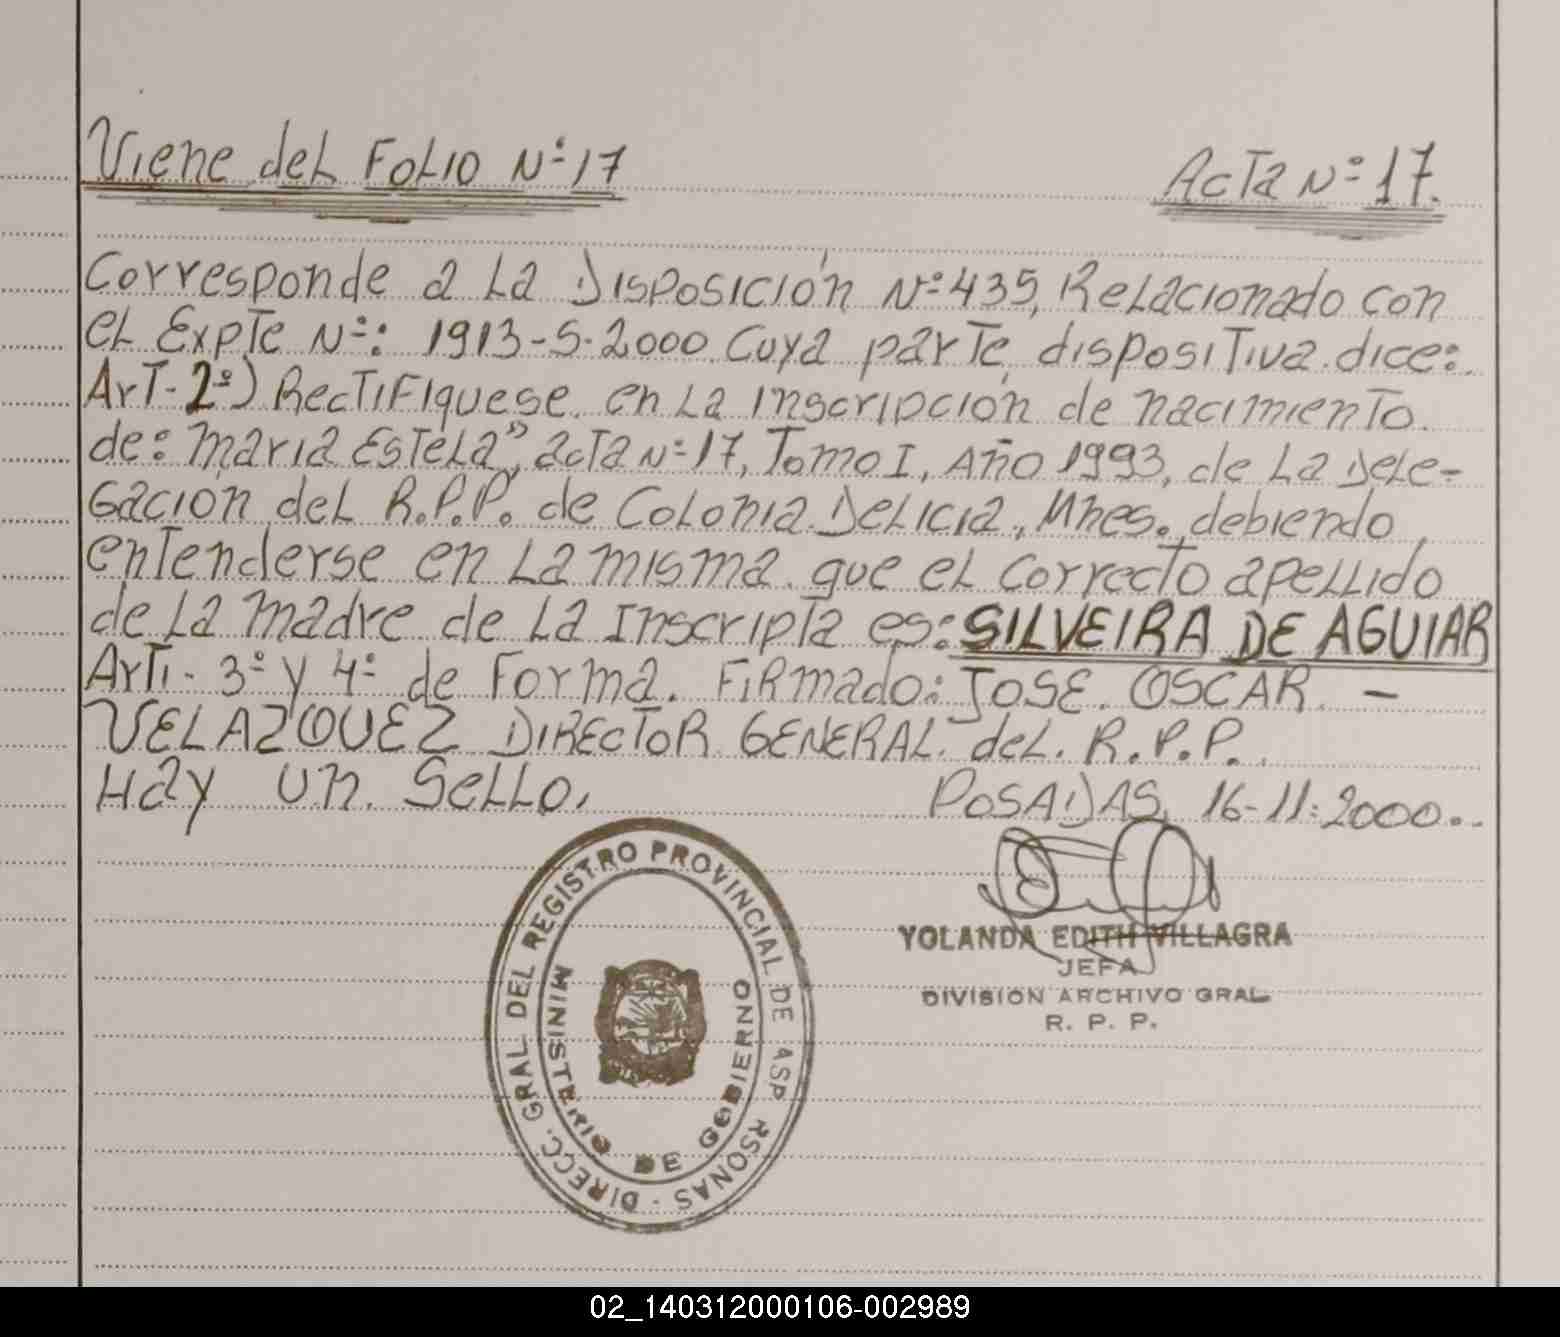 Viene del Folio Nº 17
Acta Nº 17.
Corresponde a La Disposición Nº 435, Relacionado con
el Expte Nº: 1913-S-2000 Cuya parte dispositiva dice:
Art. 2º) Rectifiquese en La inscripción de nacimiento
de: Maria Estela", acta Nº 17, Tomo I, Año 1993, de La Dele=
gación del R.P.P. de Colonia Delicia, Mnes. debiendo
entenderse en La misma que el correcto apellido
de La madre de La Inscripta es: SILVEIRA DE AGUIAR
Arti. 3º y 4º de Forma. Firmado: JOSE OSCAR -
VELAZQUEZ DIRECTOR GENERAL del R.P.P.
Hay un Sello.
POSADAS, 16-11-2000..
DIRECC. GRAL DEL REGISTRO PROVINCIAL DE ASP RSONAS -
MINISTERIO DE GOBIERNO
YOLANDA EDITH VILLAGRA
JEFA
DIVISION ARCHIVO GRAL
R. P. P.
02_140312000106-002989